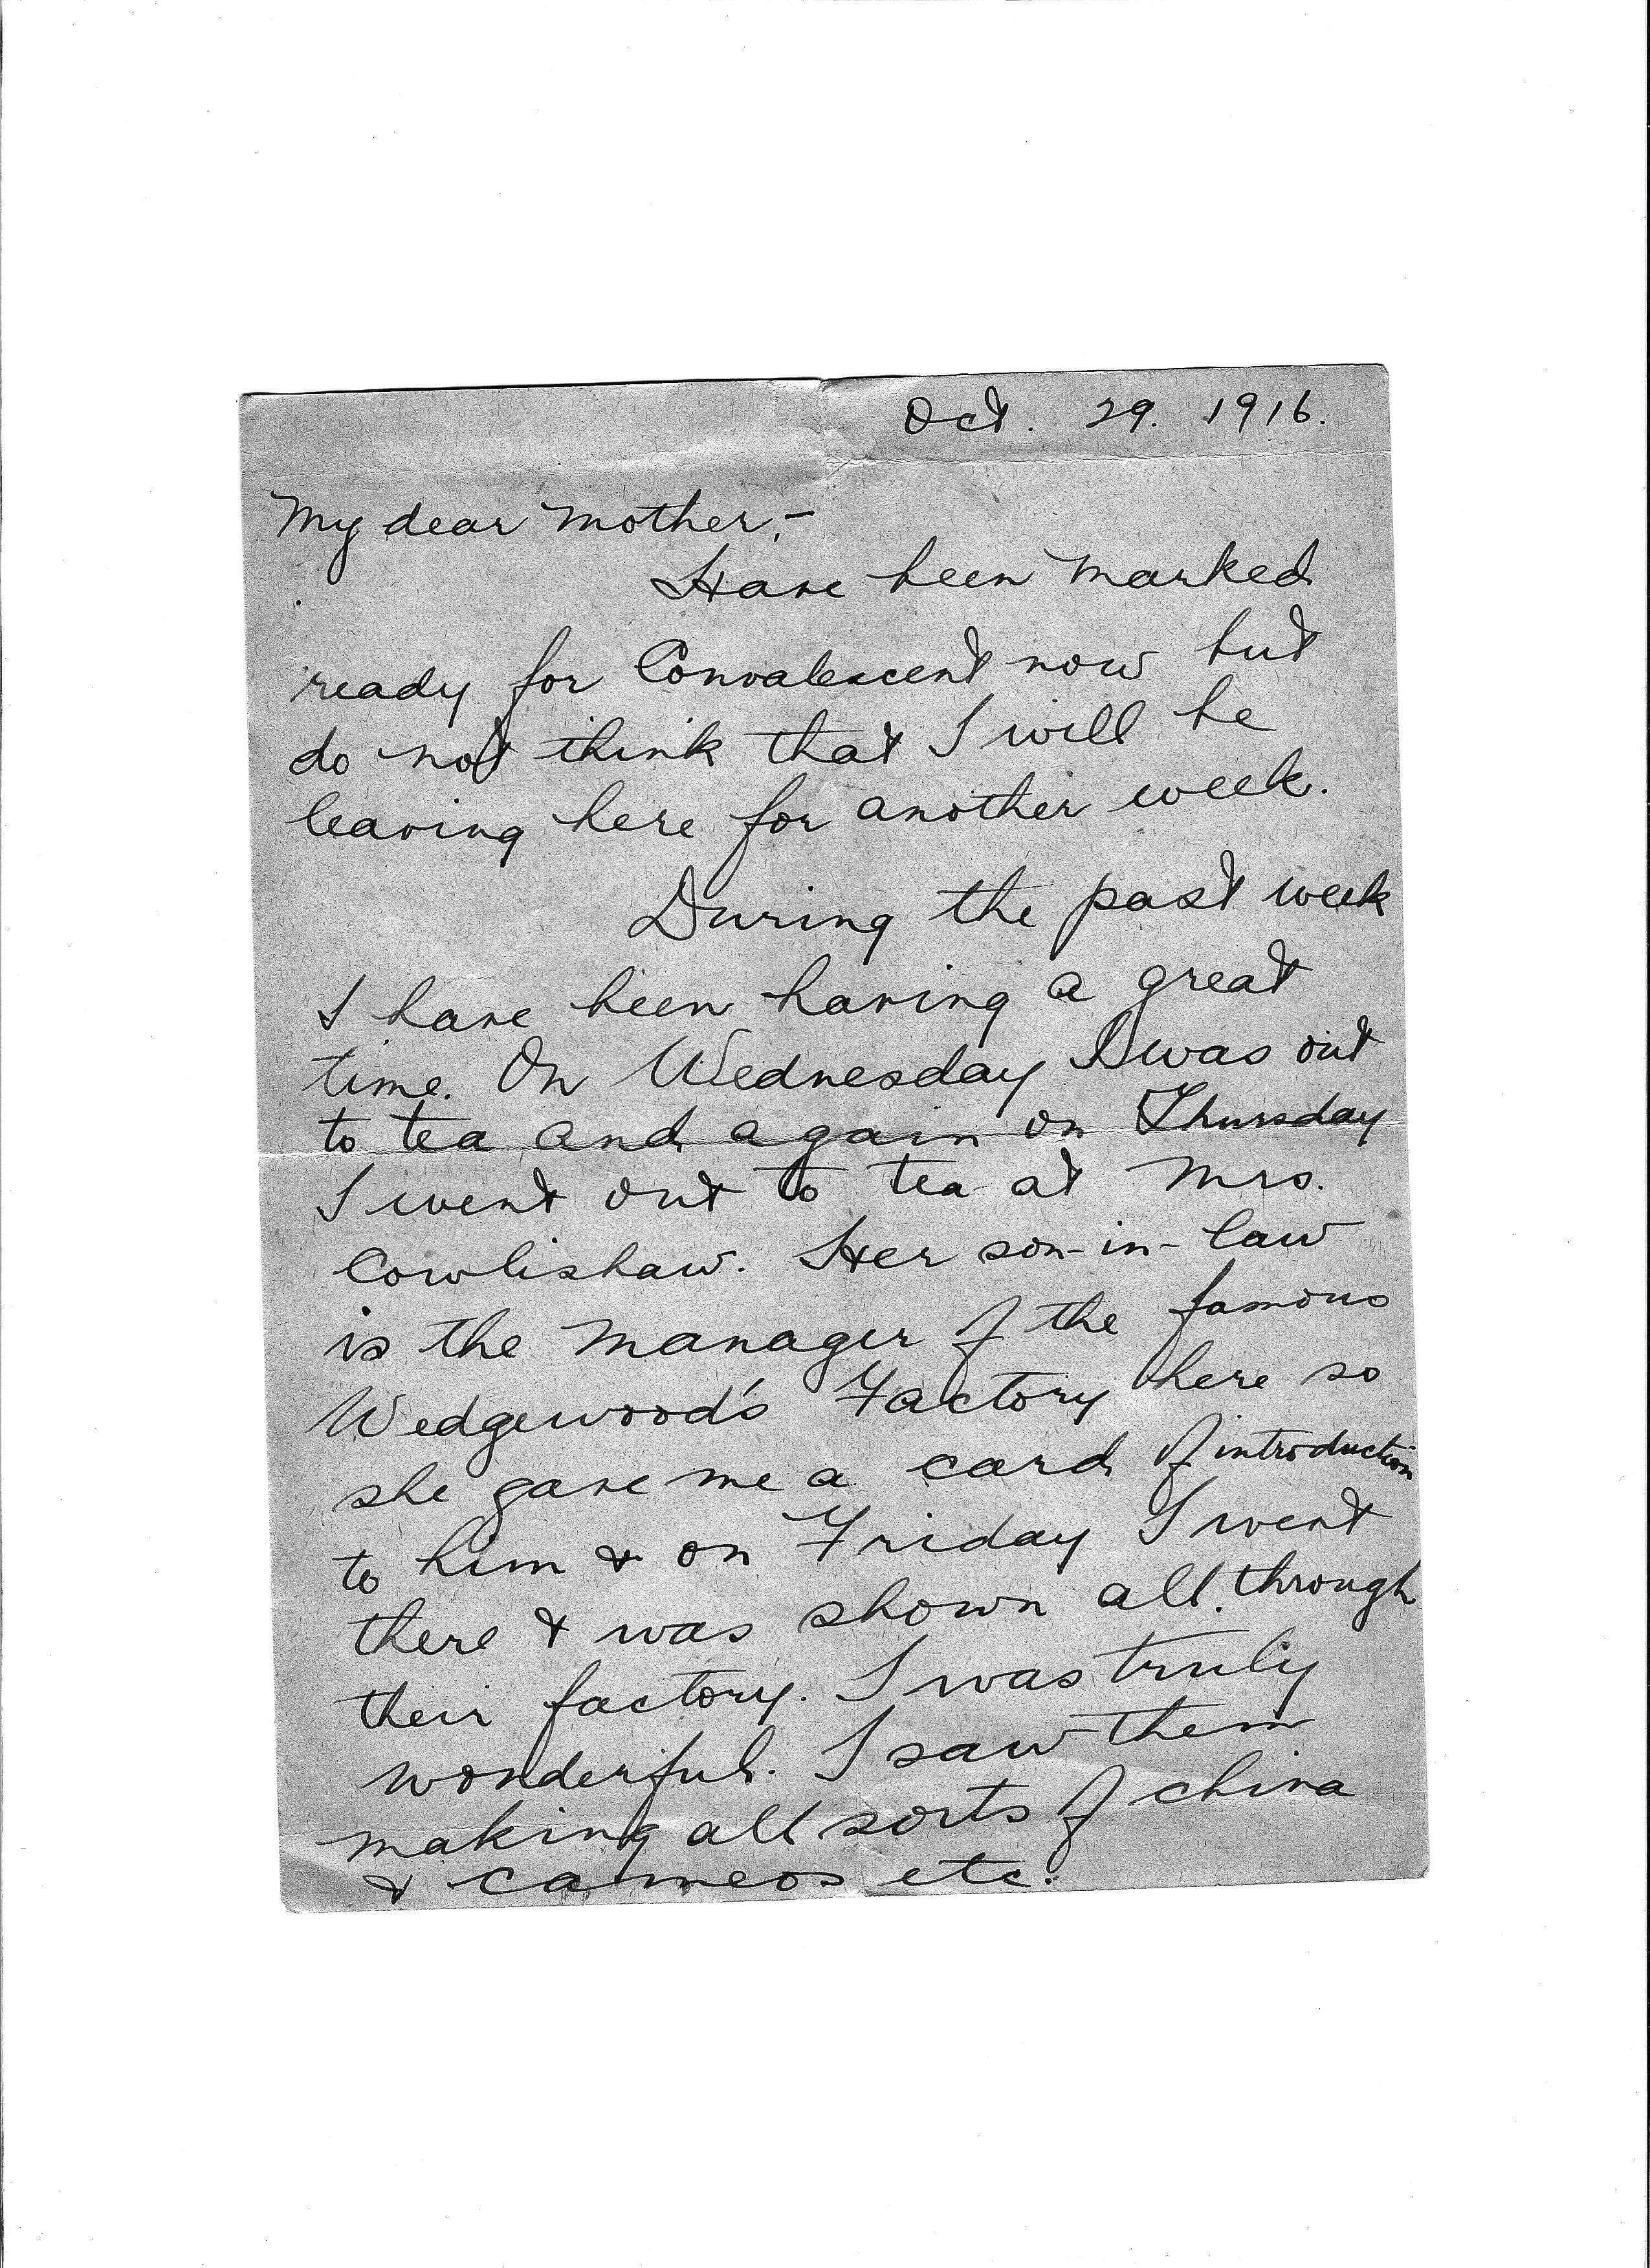 Oct. 29. 1916.
My dear Mother,-
Have been marked
ready for Convalescent now but
do not think that I will be
leaving here for another week.
During the past week
I have been having a great
time. On Wednesday I was out
to tea and again on Thursday
I went out to tea at Mrs.
Cowlishaw. Her son-in-law
is the manager of the famous
Wedgewood's Factory here so
she gave me a card of introduction
to him & on Friday I went
there & was shown all through
their factory. I was truly
wonderful. I saw them
making all sorts of china
& cameos etc.